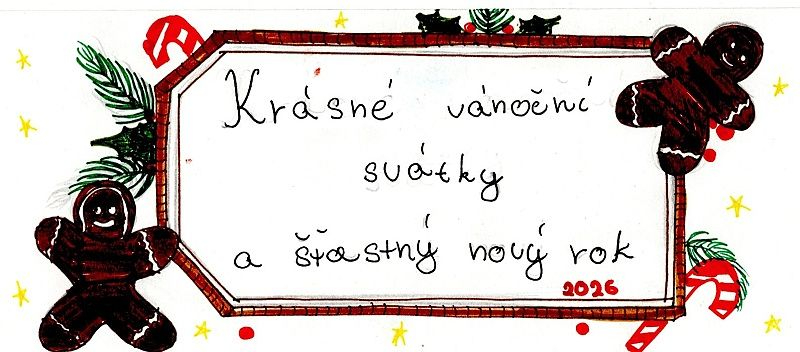 Krásné vánoční
svátky
a šťastný nový rok
2026